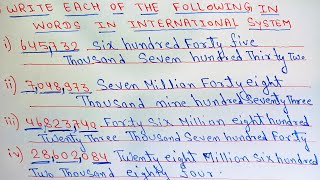 WRITE EACH OF THE FOLLOWING IN
WORDS IN INTERNATIONAL SYSTEM
i) 645,732 Six hundred Forty five
Thousand Seven hundred Thirty Two
ii) 7,048,973 Seven Million Forty eight
Thousand nine hundred Seventy Three
iii) 46,823,740 Forty Six Million eight hundred
Twenty Three Thousand Seven hundred Forty
iv) 28,602,084 Twenty eight Million Six hundred
Two Thousand eighty four.